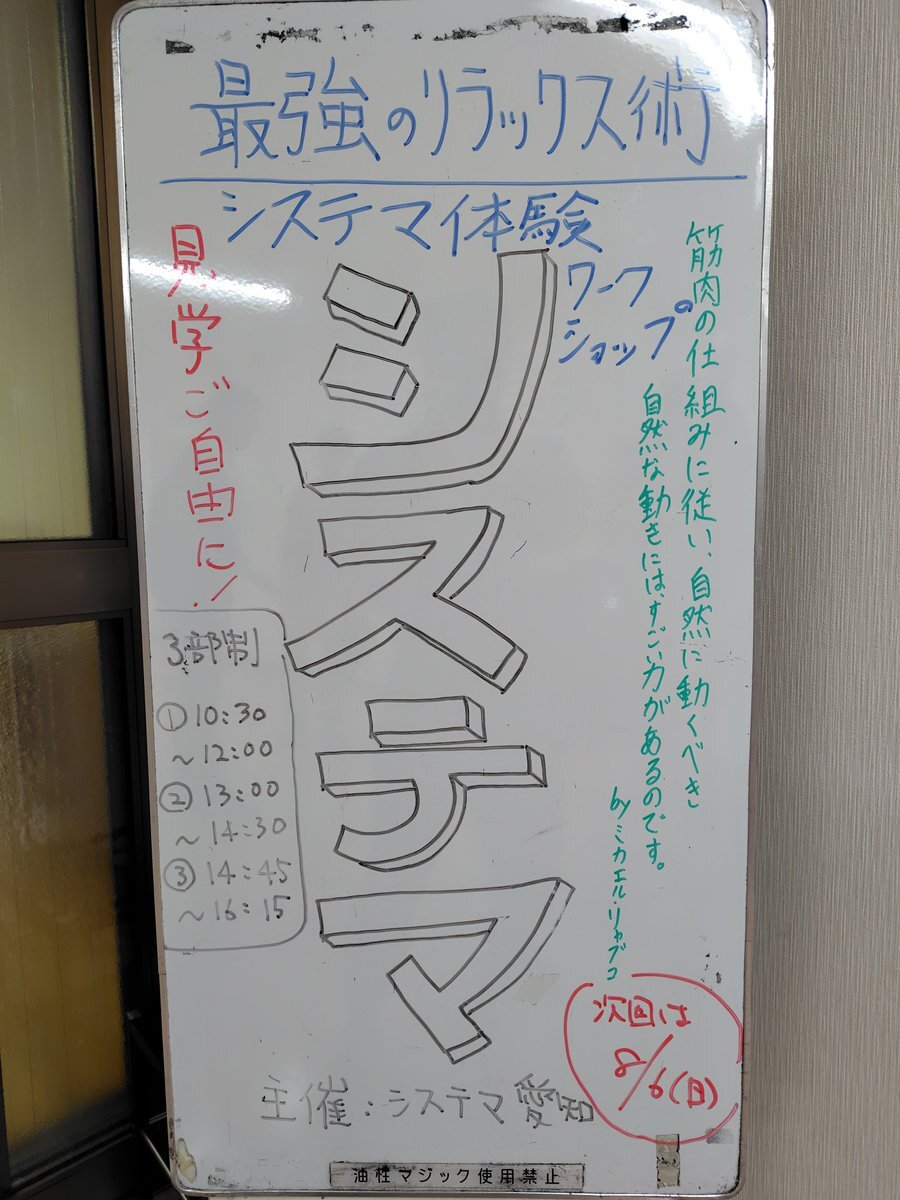 最強のリラックス術
システマ体験
ワーク
ショップ
システマ
筋肉の仕組みに従い、自然に動くべき
自然な動きには、すごい力があるのです。
byミカエル・リャブコ
見学ご自由に!
3部制
①10:30
~12:00
②13:00
~14:30
③14:45
~16:15
次回は
8/6(日)
主催:システマ愛知
油性マジック使用禁止